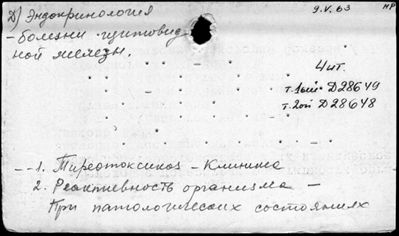 Д) Эндокринология
9.V.63
нр
- болезни щитовид-
ной железы.
4 шт.
т. 1ый D28649
т. 2ой D28648
- - 1. Тиреотоксикоз - Клиника
2. Реактивность организма -
При патологических состояниях